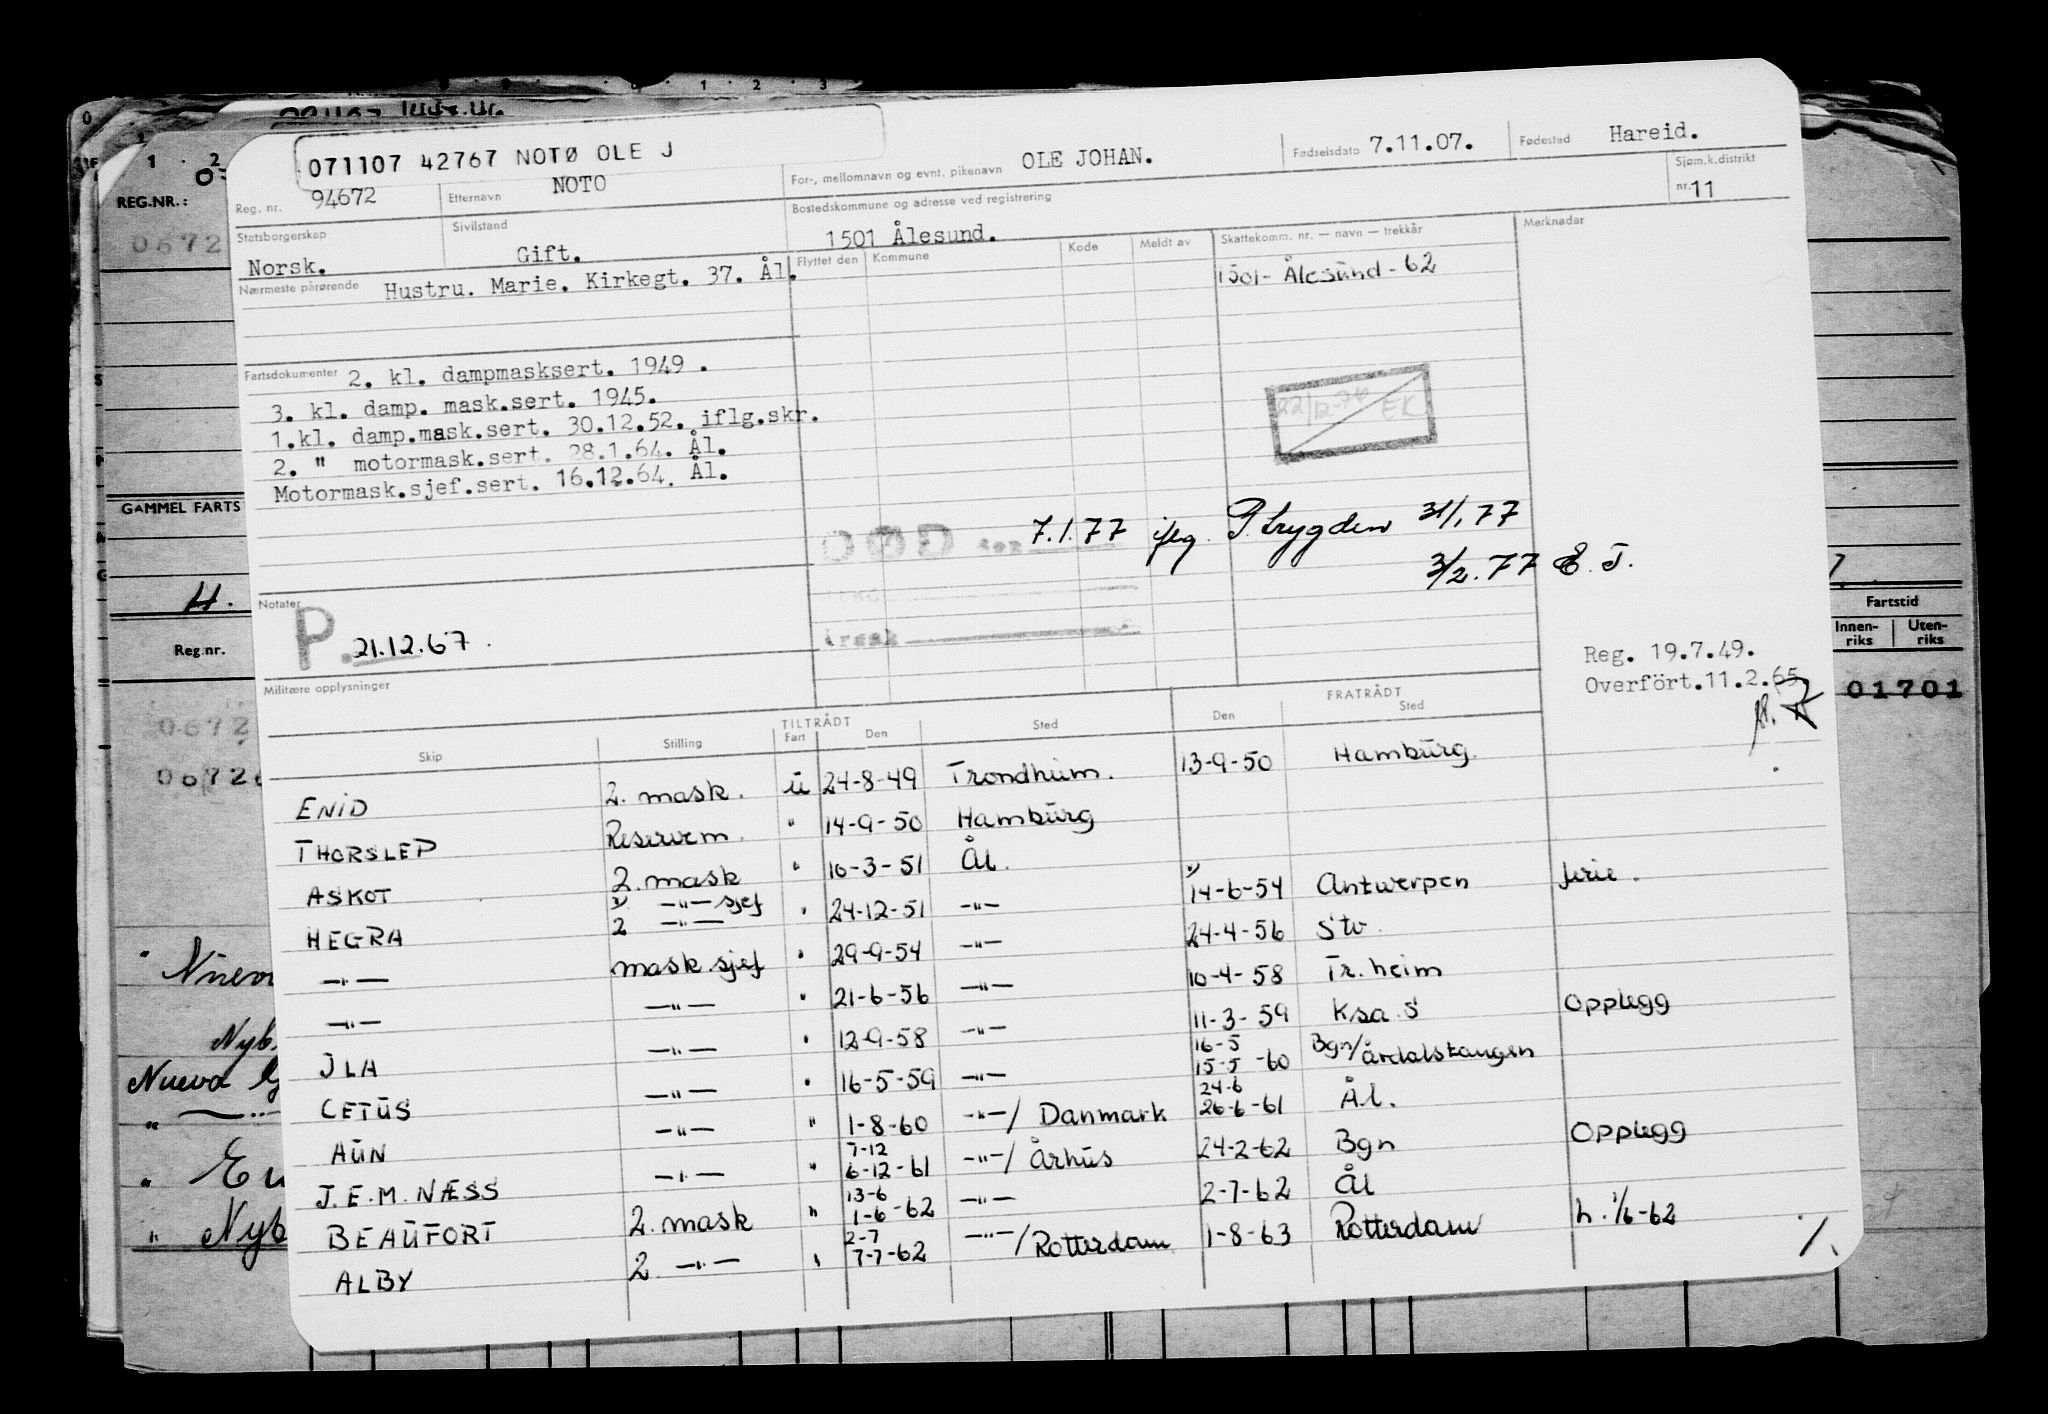 071107 42767 NOTØ OLE J
Reg. nr. 94672 Etternavn NOTO For-, mellomnavn og evnt. pikenavn OLE JOHAN. Fødselsdato 7.11.07. Fødested Hareid.
Statsborgerskap Norsk. Sivilstand Gift. Bostedskommune og adresse ved registrering 1501 Ålesund. Sjøm.k.distrikt nr. 11
Nærmeste pårørende Hustru. Marie. Kirkegt. 37. Ål. Flyttet den Kommune Kode Meldt av Skattekomm. nr. — navn — trekkår Merknader
1501- Ålesund - 62
Fartsdokumenter 2. kl. dampmasksert. 1949 .
3. kl. damp. mask.sert. 1945.
1.kl. damp.mask.sert. 30.12.52. iflg.skr.
2. " motormask.sert. 28.1.64. Ål.
Motormask.sjef.sert. 16.12.64. Ål.
22/12-76 EK
DØD 7.1.77 iflg. P.trygden 31/1.77
3/2.77 E.T.
årsak
Notater P. 21.12.67.
Militære opplysninger
Reg. 19.7.49.
Overfört.11.2.65.
TILTRÅDT FRATRÅDT
Skip Stilling Fart Den Sted Den Sted
ENID 2. mask. u 24-8-49 Trondheim. 13-9-50 Hamburg.
THORSLEP Reservem. " 14-9-50 Hamburg
ASKOT 2. mask " 10-3-51 Ål.
HEGRA 2 —"— sjef " 24-12-51 —"— 14-6-54 Antwerpen ferie.
—"— mask.sjef " 29-9-54 —"— 24-4-56 Stv.
—"— —"— " 21-6-56 —"— 10-4-58 Tr.heim
JLA —"— " 12-9-58 —"— 11-3-59 Ksa. S Opplegg
CETUS —"— " 16-5-59 —"— 16-5 15-5-60 Bgn/Årdalstangen
AUN —"— " 1-8-60 —"—/ Danmark 24-6 26-6-61 Ål.
J.E.M. NÆSS —"— " 7-12 6-12-61 —"—/ Århus 24-2-62 Bgn Opplegg
BEAUFORT 2. mask " 13-6 1-6-62 —"— 2-7-62 Ål
ALBY 2. —"— " 2-7 7-7-62 —"—/ Rotterdam 1-8-63 Rotterdam h. 1/6-62
REG.NR.:
0672
GAMMEL FARTS
H.
Reg.nr.
0672
Fartstid
Innen-riks Uten-riks
01701
Nueva
Nyb
Nueva
"
"
" Nyb